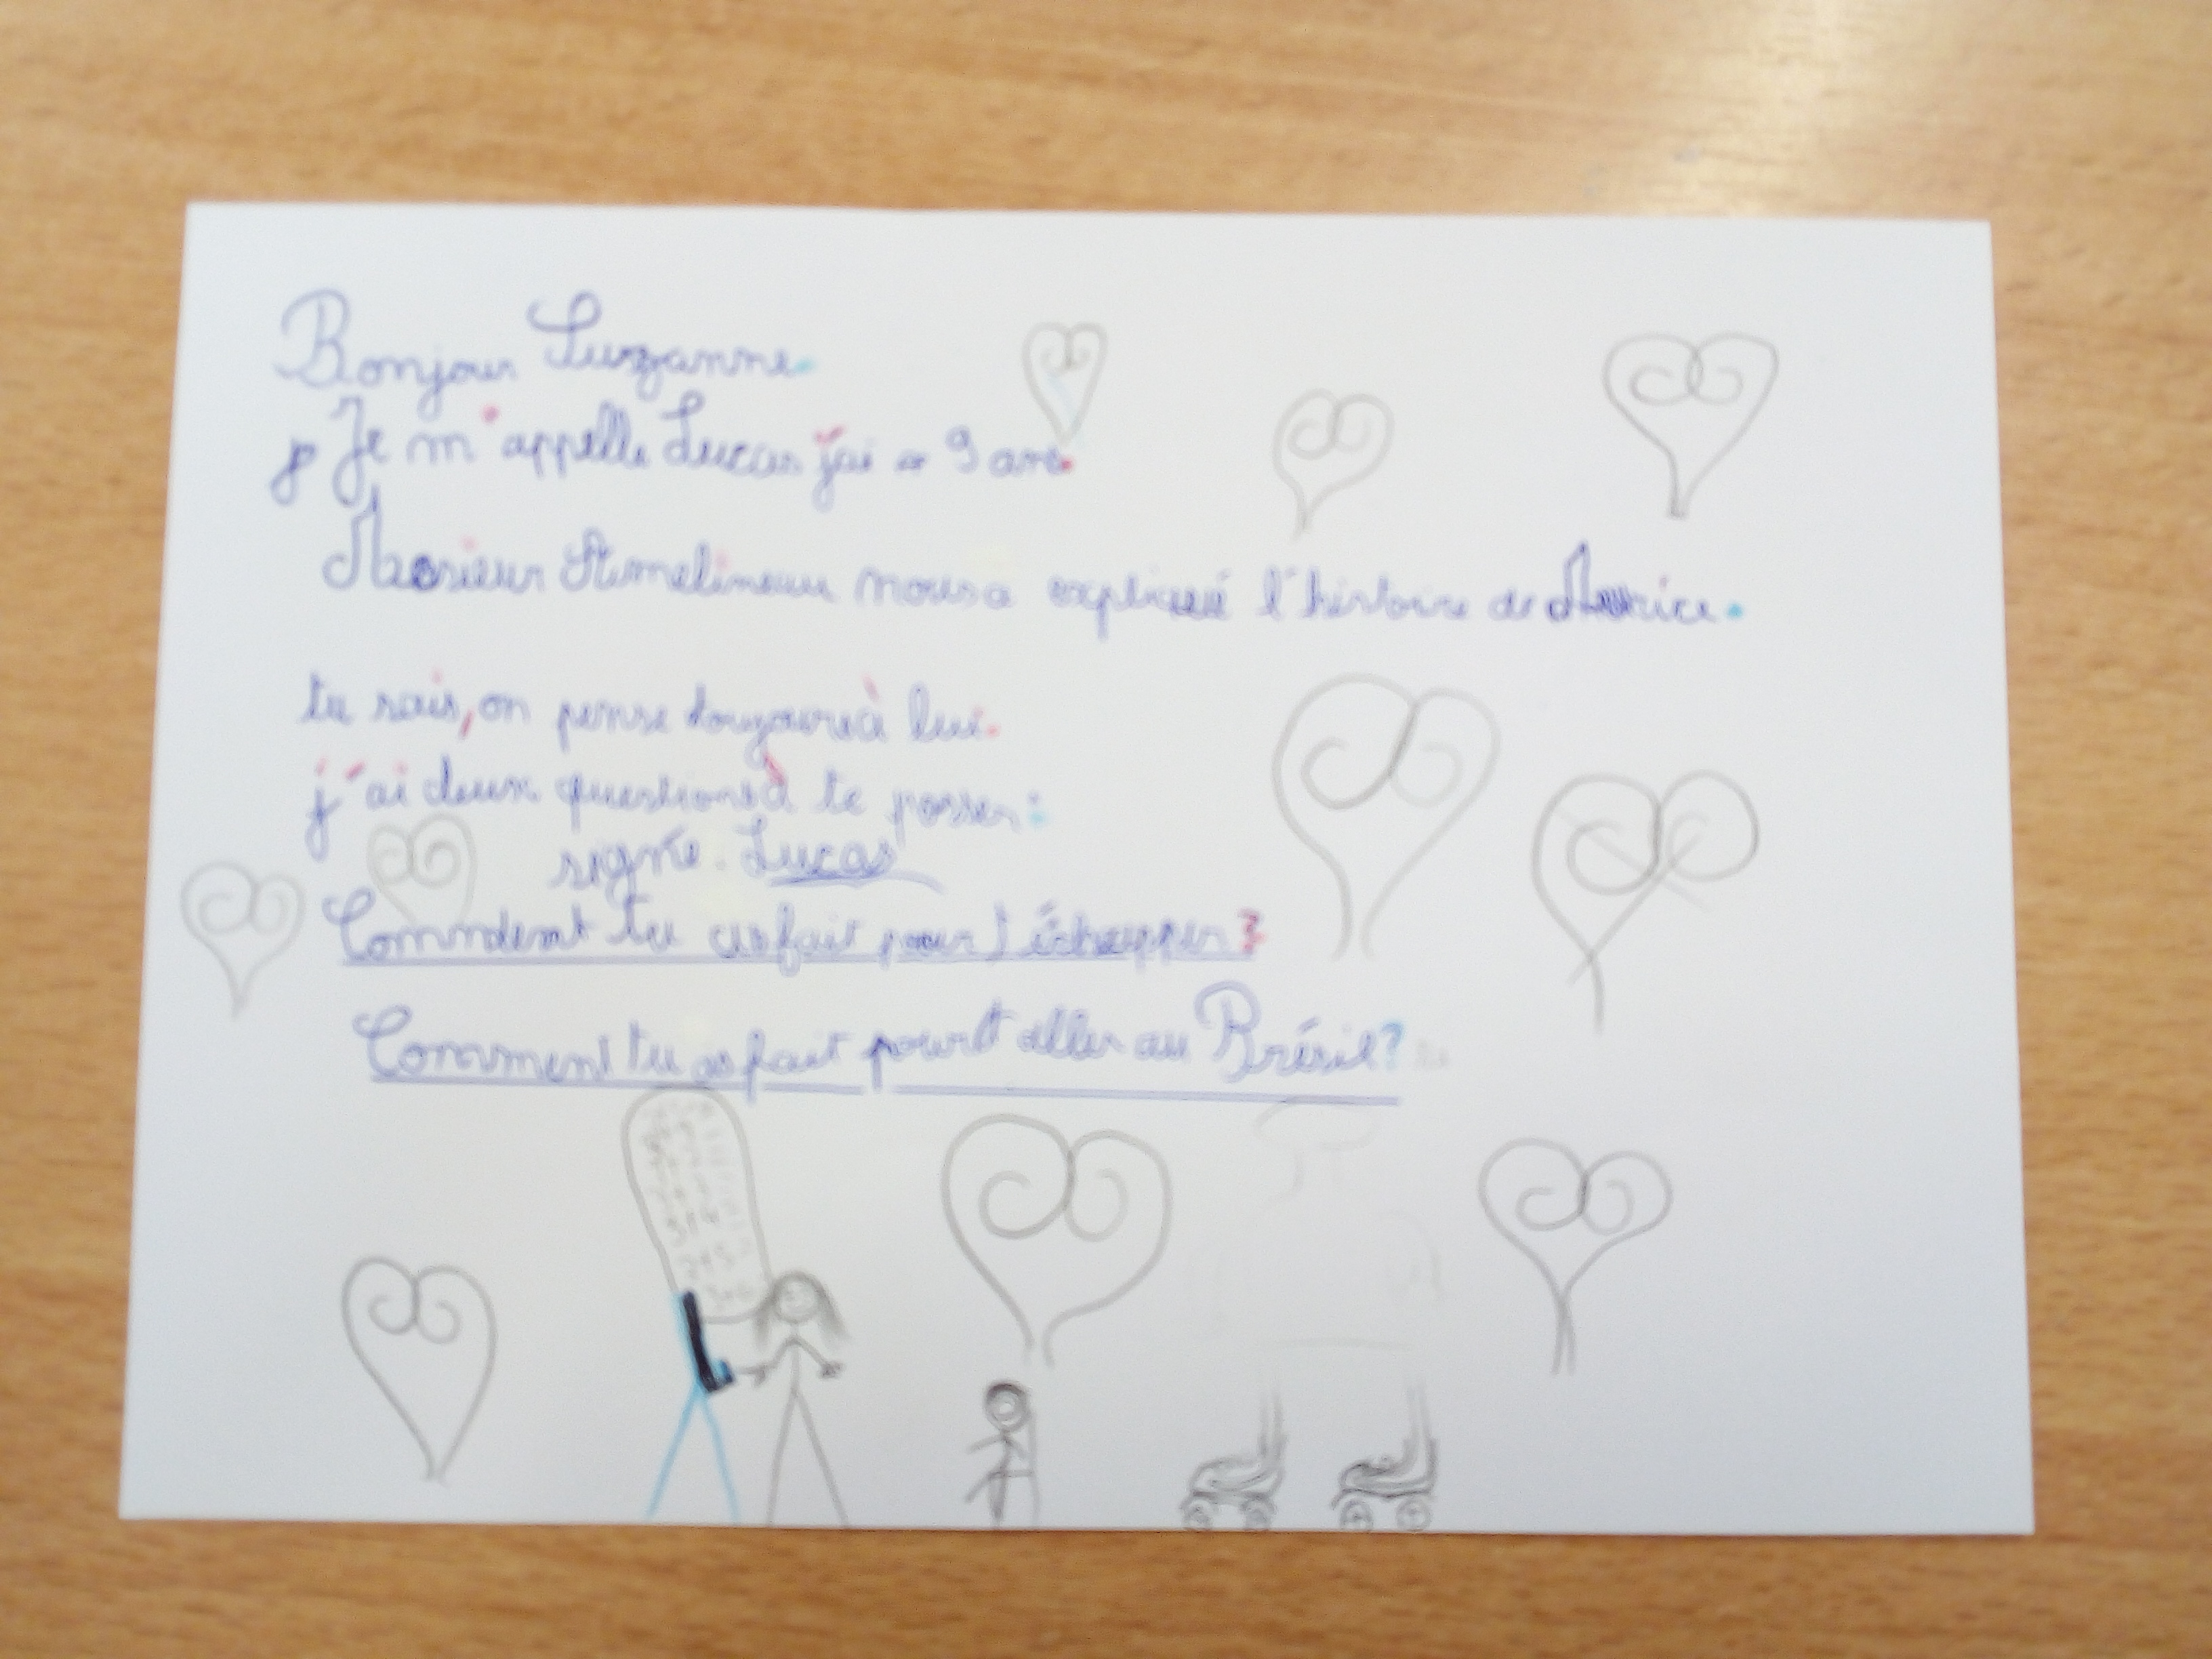 Bonjour Suzanne.
Je m'appelle Lucas j'ai 9 ans.
Monsieur nous a expliqué l'histoire de Maurice.
tu sais, on pense toujours à lui.
j'ai deux questions à te posser:
signé. Lucas
Comment tu as fait pour t'échapper?
Comment tu as fait pour aller au Brésil?
3+4=
3+5=
3+6=